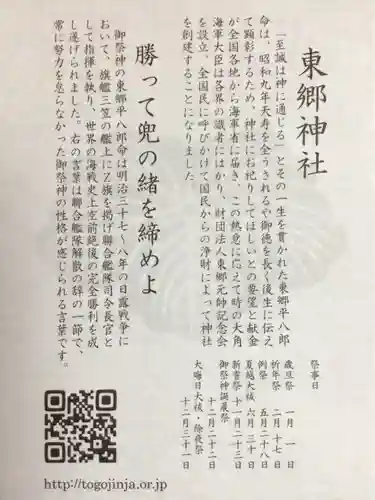 東郷神社
「至誠は神に通じる」とその一生を貫かれた東郷平八郎
命は、昭和九年天寿を全うされるや御徳を長く後生に伝え
て顕彰するため、神社にお祀りしてほしいとの要望と献金
が全国各地から海軍省に届き、この熱意に応えて時の大角
海軍大臣は各界の識者にはかり、財団法人東郷元帥記念会
を設立、全国民に呼びかけて国民からの浄財によって神社
を創建することになりました
祭事日
歳旦祭 一月一日
祈年祭 二月十七日
例祭 五月二十八日
夏越大祓 六月三十日
新嘗祭 十一月二十三日
御祭神誕晨祭
十二月二十二日
大晦日大祓・除夜祭
十二月三十一日
勝って兜の緒を締めよ
御祭神の東郷平八郎命は明治三十七～八年の日露戦争に
おいて、旗艦三笠の艦上にZ旗を掲げ聯合艦隊司令長官と
して指揮を執り、世界の海戦史上空前絶後の完全勝利を成
し遂げられました。右の言葉は聯合艦隊解散の辞の一節で、
常に努力を怠らなかった御祭神の性格が感じられる言葉です。
http://togojinja.or.jp